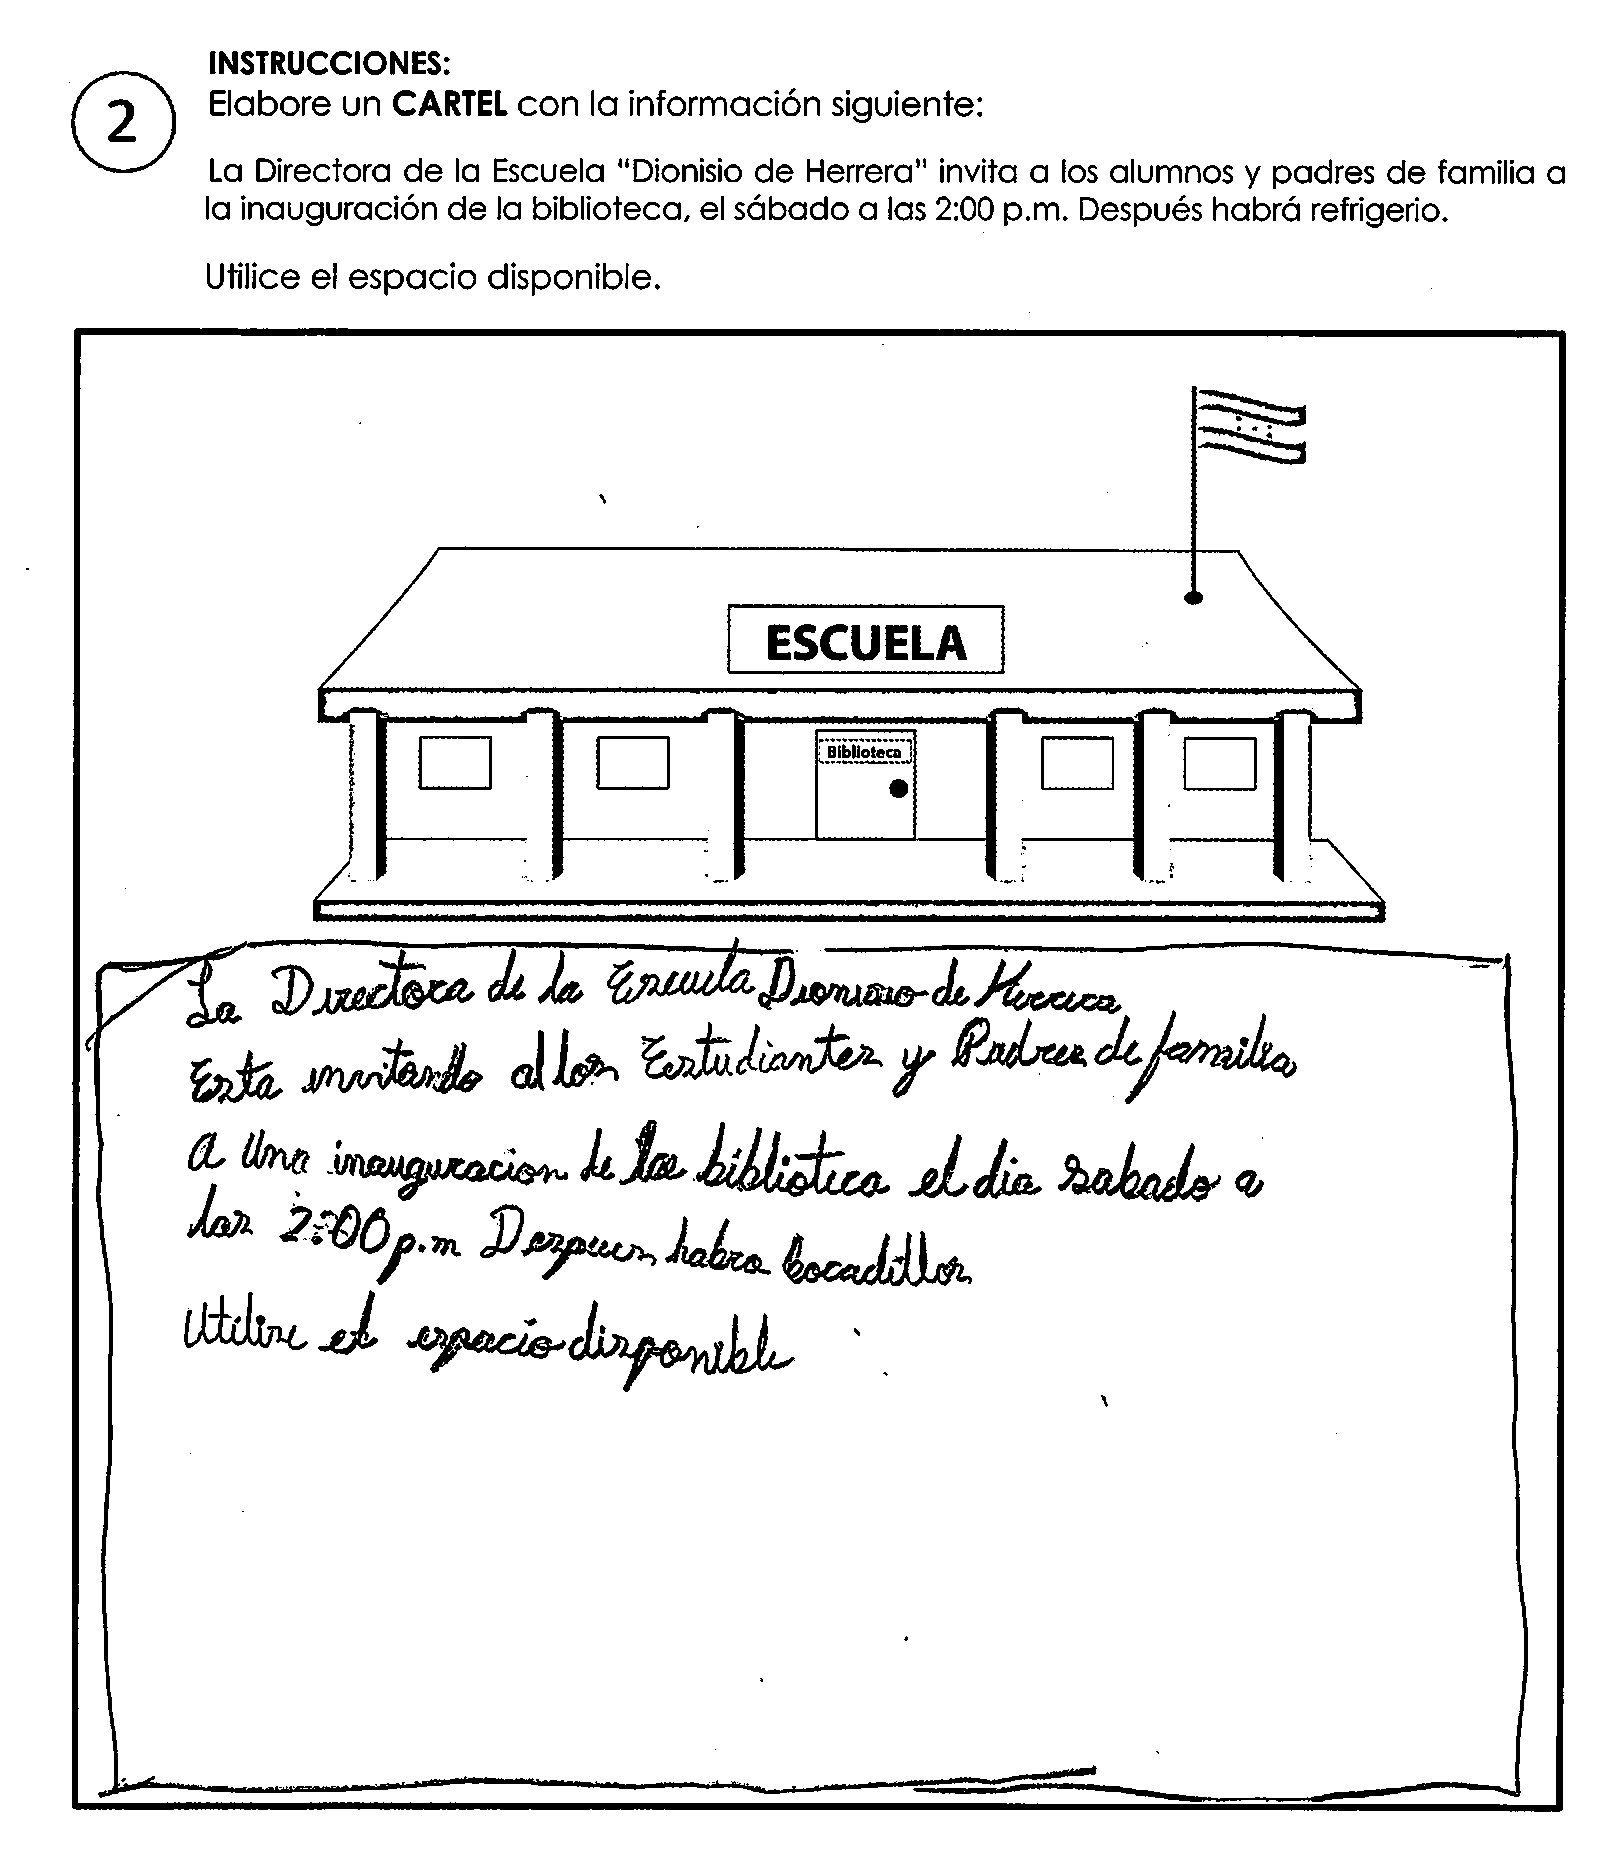 INSTRUCCIONES:
2
Elabore un CARTEL con la información siguiente:
La Directora de la Escuela "Dionisio de Herrera" invita a los alumnos y padres de familia a
la inauguración de la biblioteca, el sábado a las 2:00 p.m. Después habrá refrigerio.
Utilice el espacio disponible.
ESCUELA
Biblioteca
La Directora de la Escuela Dionisio de Herrera
Esta invitando al los Estudiantes y Padres de familia
A Una inauguracion de la biblioteca el dia sabado a
las 2:00 p.m Despues habra bocadillos
Utilise el espacio disponible